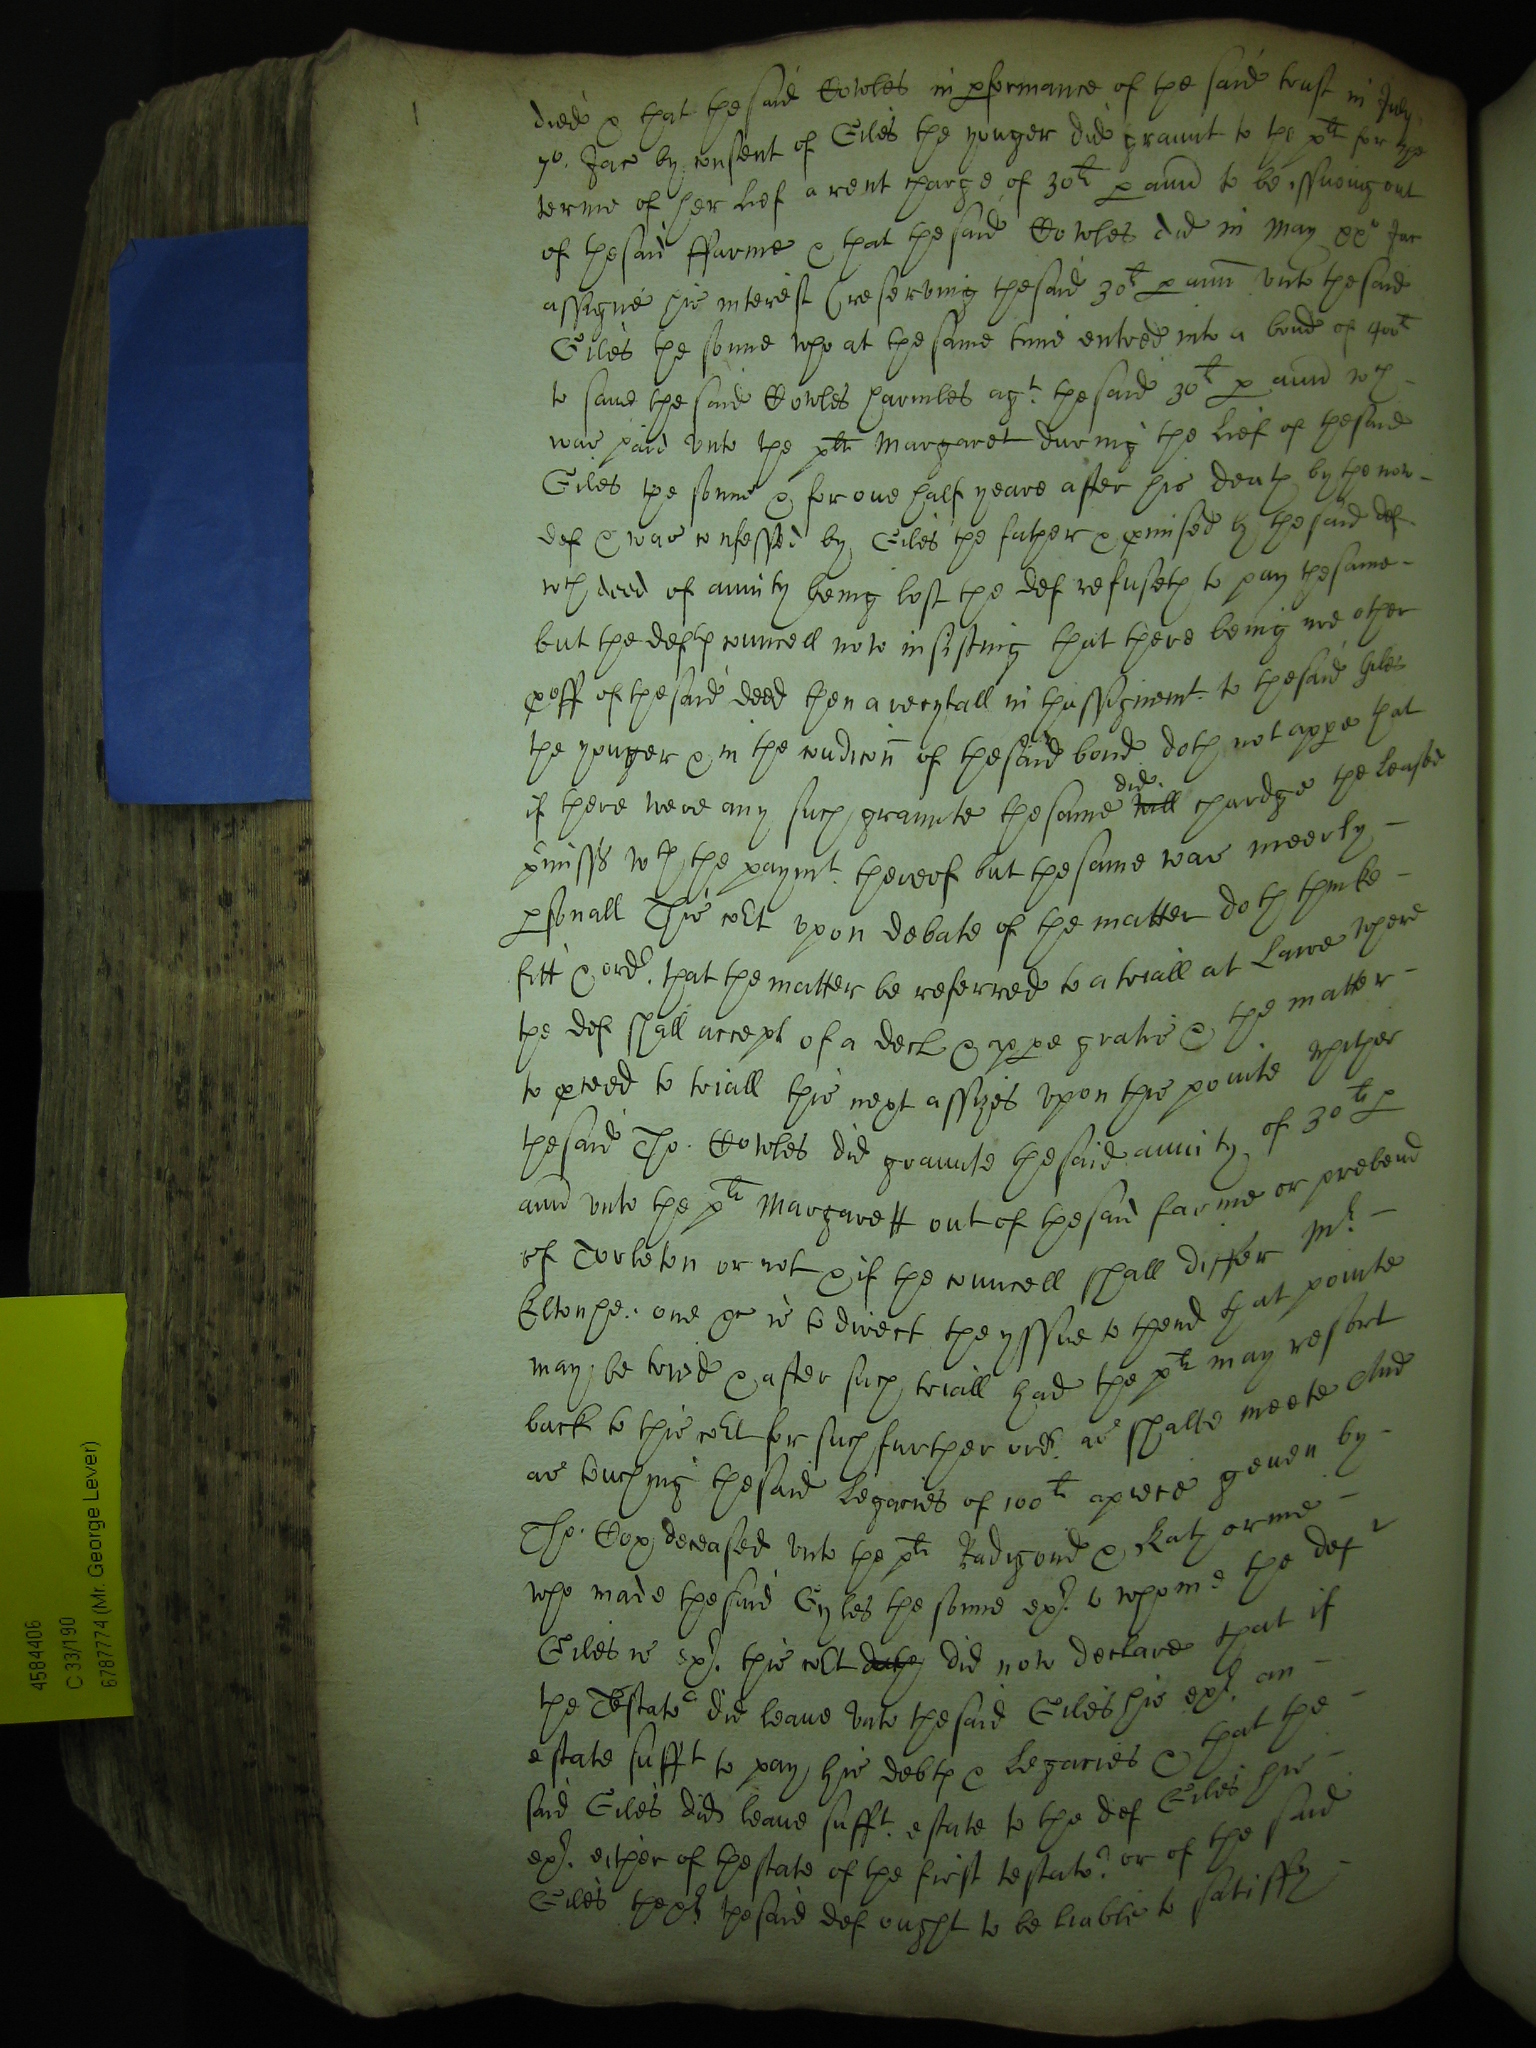 died & that the said Cowles in pformance of the said trust in July
7o. Jac by consent of Giles the younger did graunt to the plt for the
terme of her lief a rent charge of 30li p ann to be issueng out
of the said ffarme & that the said Cowles did in May xxo Jac
assigne his interest (reserving the said 30li p ann vnto the said
Giles the sonne who at the same time entred into a bond of 400li
to saue the said Cowles harmles agt. the said 30li p ann wch
was paid vnto the plt Margaret during the lief of the said
Giles the sonne & for one half yeare after his death by the now
def & was confessed by Giles the father & pmised by the said def
wch deed of anuity being lost the def refuseth to pay the same
but the defts councell now insisting that there being noe other
proff of the said deed then a recytall in thassignemt. to the said Giles
the younger & in the condicon of the said bond doth not appe that
if there were any such graunte the same did chardge the leased
pmisss wth the paymt. thereof but the same was meerly
psonall This cort vpon debate of the matter doth thinke
fitt & ordr. that the matter be referred to a triall at Lawe where
the def shall accept of a decl & appe gratis & the matter
to pceed to triall this next assizes vpon this pointe whither
the said Tho. Cowles did graunte the said anuity of 30li p
ann vnto the plt Margarett out of the said farme or prebend
of Torleton or not & if the councell shall differ Mr.
Eltonhe. one &c is to direct the yssue to thend that pointe
may be tried & after such triall had the plt may resort
back to this cort for such further ordr. as shalbe meete And
as touching the said Legacies of 100li apiece geuen by
Tho. Cox deceased vnto the plts Radigond & Katherine
who made the said Gyles the sonne exr. to whome the def
Giles is exr. this cort did now declare that if
the Testator did leaue vnto the said Giles his exr. an
estate sufft to pay his debts & Legacies & that the
said Giles did leaue sufft. estate to the def Giles his
exr. either of thestate of the first testator. or of the said
Giles thexr the said def ought to be liable to satisfy
4584406
C 33/190
6787774 (Mr. George Lever)